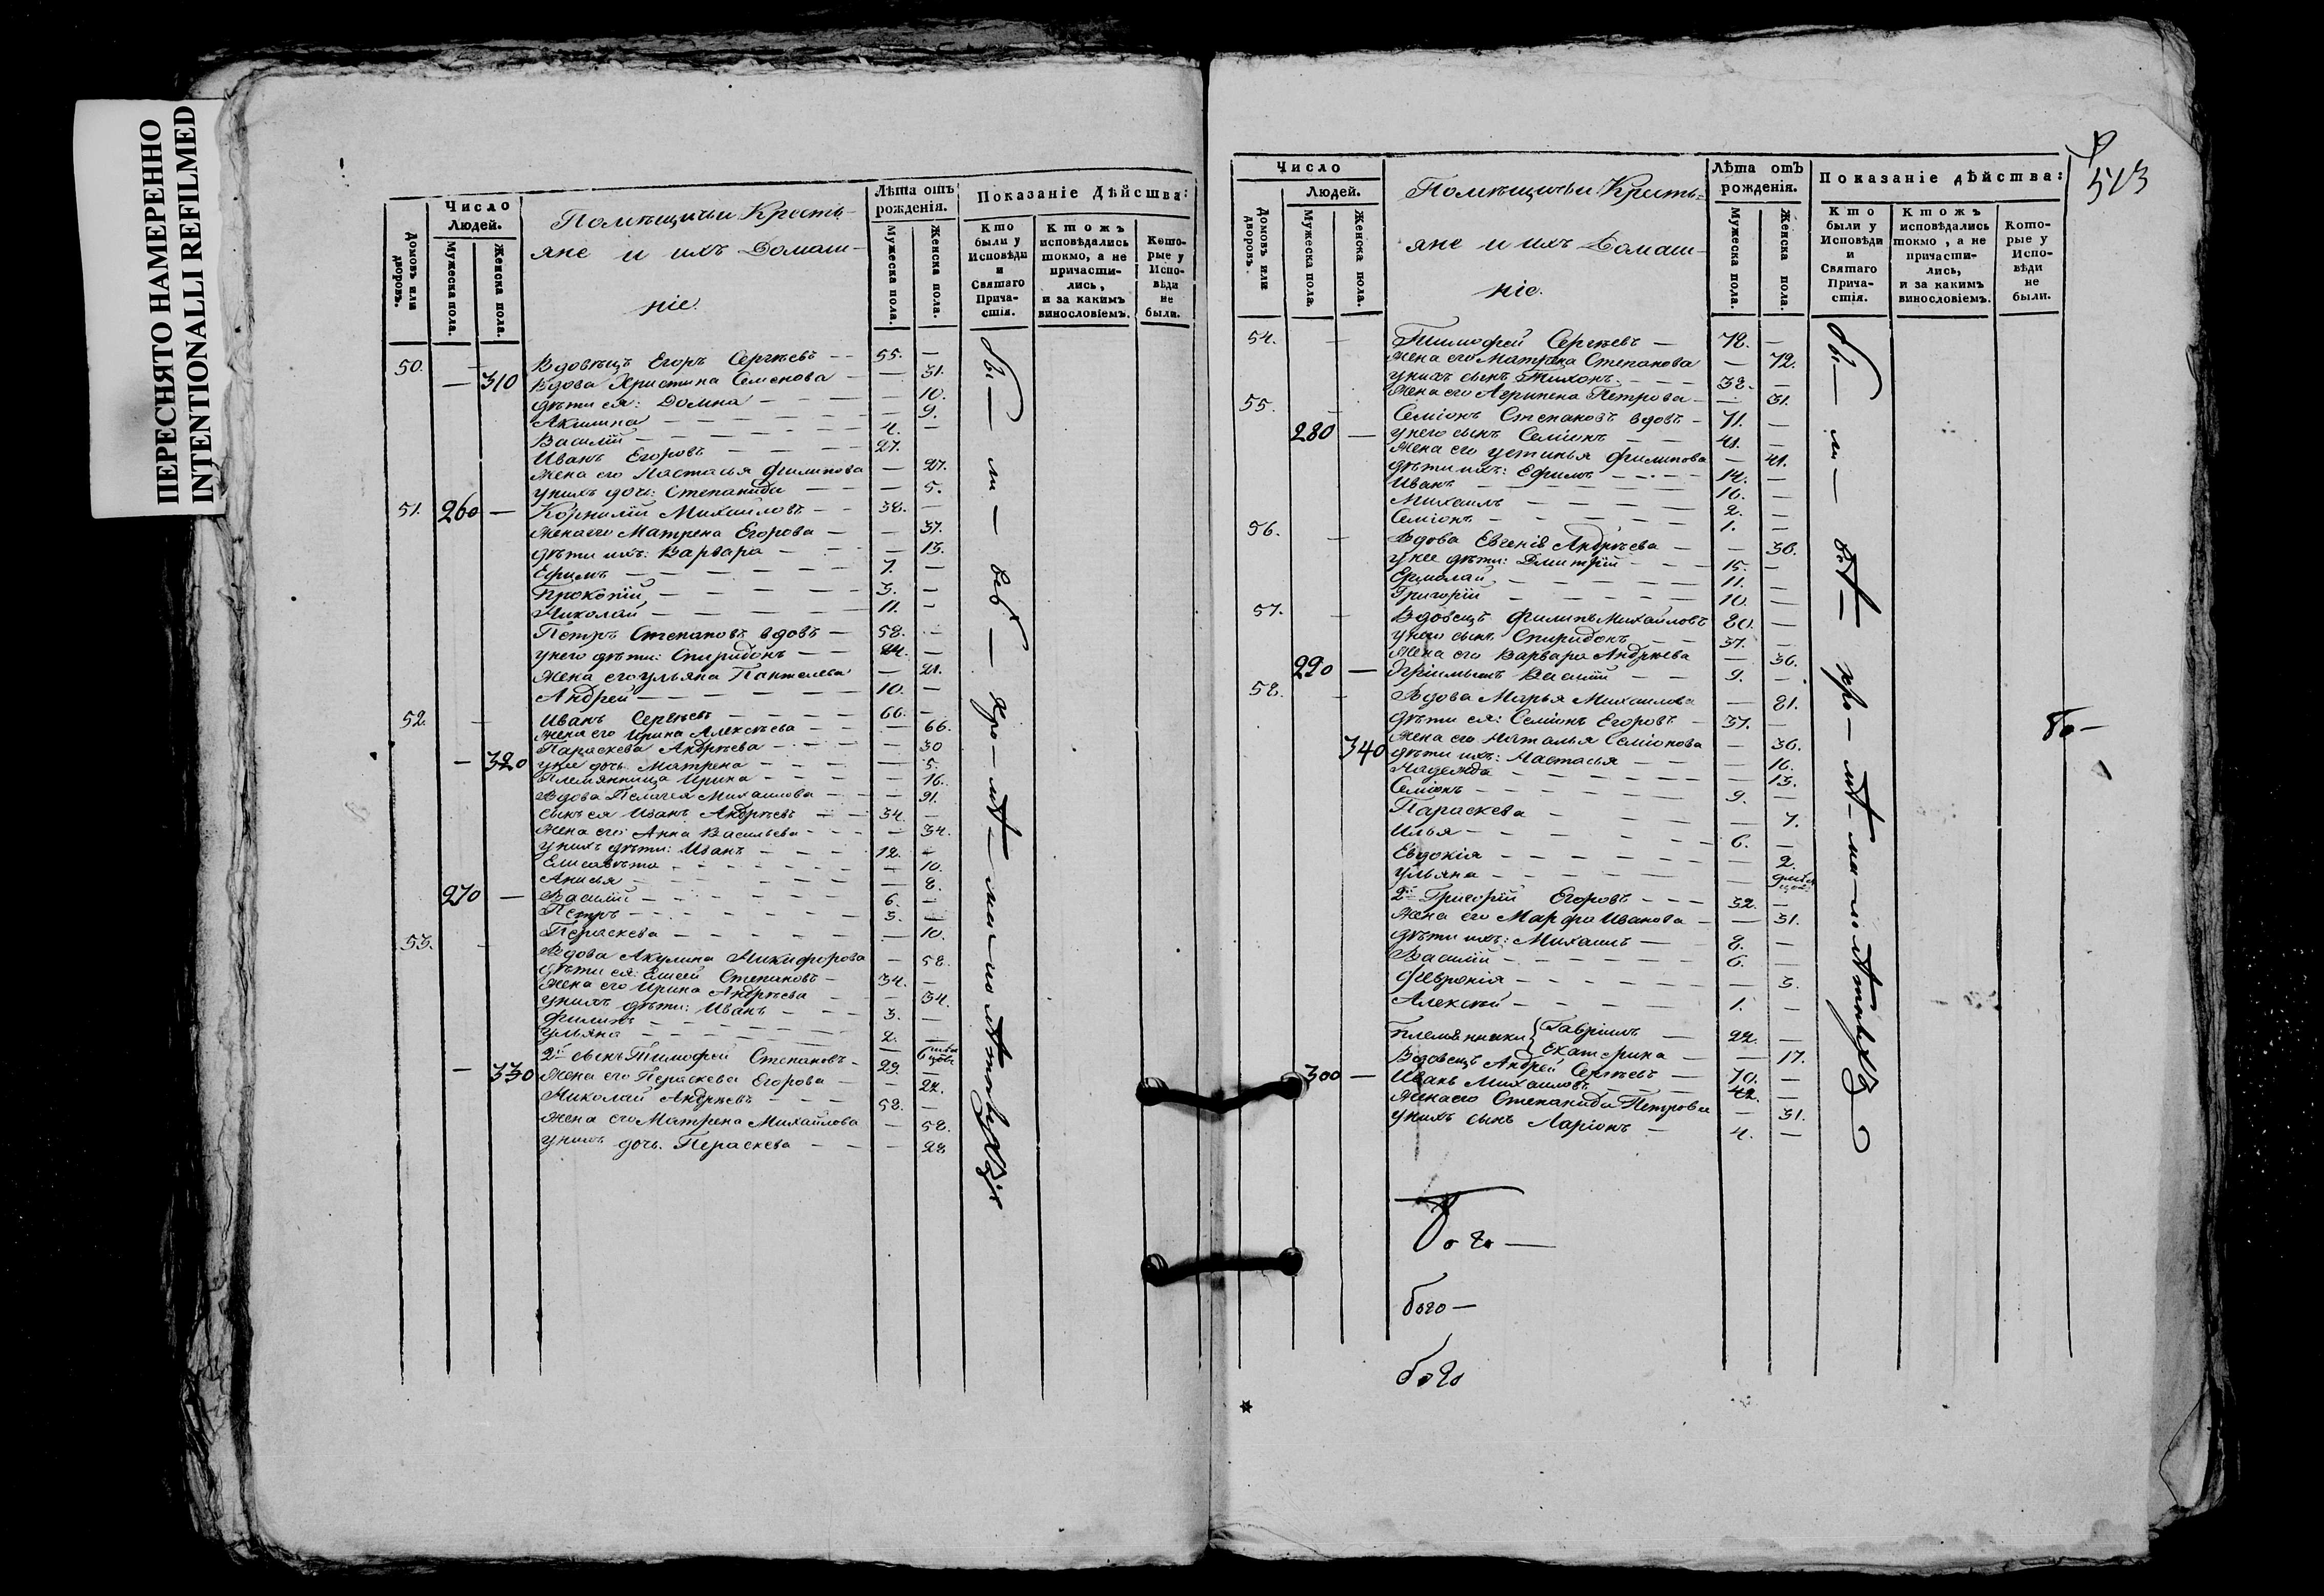 ПЕРЕСНЯТО НАМЕРЕННО
INTENTIONALLI REFILMED
Число
Людей.
Домовъ или дворовъ.
Мужеска пола.
Женска пола.
Помѣщичьи Кресть-
яне и ихъ Домаш-
ніе.
Лѣта отъ рожденія.
Мужеска пола.
Женска пола.
Показаніе Дѣйства:
Кто были у Исповѣди и Святаго Прича-стія.
Ктожъ исповѣдались токмо, а не причасти-лись, и за какимъ винословіемъ.
Кото-рые у Испо-вѣди не были.
50. — Вдовѣцъ Егоръ Сергѣевъ — — 55. —
— 310 Вдова Христина Семенова — — 31.
дѣти ея: Домна — — — 10.
Акилина — — — 9.
Василій — — — 4. —
Иванъ Егоровъ — — — 27. —
Жена его Настасья Филипова — 27.
у нихъ дочь: Степанида — — — 5.
51. 260 — Корнилій Михаиловъ — — 38. —
Жена его Матрена Егорова — — 37.
дѣти ихъ: Варвара — — — 13.
Ефимъ — — — 7. —
Прокопій — — — 3. —
Николай — — — 11. —
Петръ Степановъ вдовъ — 58. —
у него дѣти: Спиридонъ — — 24. —
Жена его Ульяна Пантелева — 21.
Андрей — — — 10. —
52. — Иванъ Сергѣевъ — — — 66. —
Жена его Ирина Алексѣева — — — 66.
Параскева Андрѣева — — — 30
— 320 у нее дочь Матрена — — — 5.
Племянница Ирина — — — 16.
Вдова Пелагея Михаилова — — 91.
сынъ ея Иванъ Андрѣевъ — — 34. —
Жена его Анна Васильева — — — 34.
у нихъ дѣти: Иванъ — — — 12. —
Елисавѣта — — — 10.
Анисья — — — 8.
270 — Василій — — — 6. —
Петръ — — — 3. —
Пераскева — — — 10.
53. — Вдова Акулина Никифорова — 58.
дѣти ея: Елисей Степановъ — 34. —
Жена его Ирина Андрѣева — — 34.
у нихъ дѣти: Иванъ — — — 3. —
Филипъ — — — 2. —
Ульяна — — —
2й сынъ Тимофей Степановъ — 29. —
— 330 Жена его Пераскева Егорова — — 22.
Николай Андрѣевъ — — — 58. —
Жена его Матрена Михайлова — 58.
у нихъ дочь. Пераскева — — — 28
бы — ли — всѣ —
513
Число
Людей.
Домовъ или дворовъ.
Мужеска пола.
Женска пола.
Помѣщичьи Кресть-
яне и ихъ Домаш-
ніе.
Лѣта отъ рожденія.
Мужеска пола.
Женска пола.
Показаніе дѣйства:
Кто были у Исповѣди и Святаго Прича-стія.
Ктожъ исповѣдались токмо, а не причасти-лись, и за какимъ винословіемъ.
Кото-рые у Испо-вѣди не были.
54. — Тимофей Сергѣевъ — 72. —
Жена его Матрена Степанова — 72.
у нихъ сынъ Тихонъ — — — 32. —
Жена его Агрипена Петрова — — 31.
55. — Семіонъ Степановъ вдовъ — 71. —
280 — у него сынъ Семіонъ — — 41. —
Жена его Устинья Филипова — 41.
дѣти ихъ: Ефимъ — — — 14. —
Иванъ — — — 10. —
Михаилъ — — — 2. —
Семіонъ — — — 1. —
56. — Вдова Евгенія Андрѣева — — 36.
у нее дѣти: Дмитрій — — — 15. —
Ермолай — — — 11. —
Григорій — — — 10. —
57. — Вдовецъ Филипъ Михайловъ 80. —
у него сынъ Спиридонъ — — 37. —
Жена его Варвара Андрѣева — 36.
290 — Василій — — 9. —
58. — Вдова Марья Михаилова — 81.
дѣти ея: Семіонъ Егоровъ — 37. —
Жена его Наталья Семіонова — 36.
340 дѣти ихъ: Настасья — — — 16.
Надежда — — — 13.
Семіонъ — — — 9. —
Параскева — — — 7.
Илья — — — 6. —
Евдокія — — — 2.
Ульяна — — —
2й Григорій Егоровъ — — — 32. —
Жена его Марфа Иванова — — 31.
дѣти ихъ: Михаилъ — 8. —
Василій — — — 6. —
Февронія — — — 3.
Алексѣй — — — 1. —
племянники { Гавріилъ — 22. —
Екатерина — — 17.
Вдовецъ Андрей Сергѣевъ — 70. —
300 — Иванъ Михаиловъ — — — 42. —
Жена его Степанида Петрова — 31.
у нихъ сынъ Ларіонъ — 4. —
бы — ли —